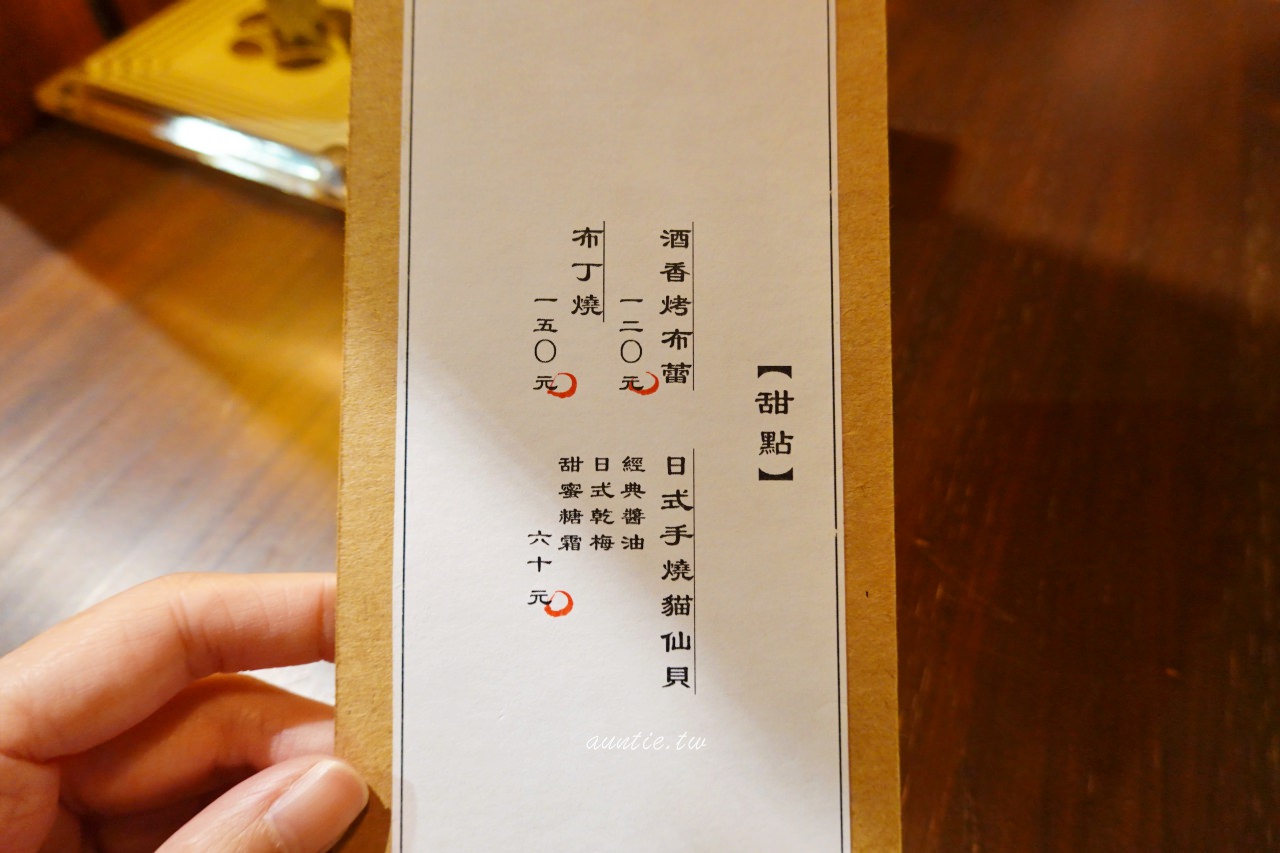 【甜點】
酒香烤布蕾
一二〇元
布丁燒
一五〇元
日式手燒貓仙貝
經典醬油
日式乾梅
甜蜜糖霜
六十元
auntie.tw